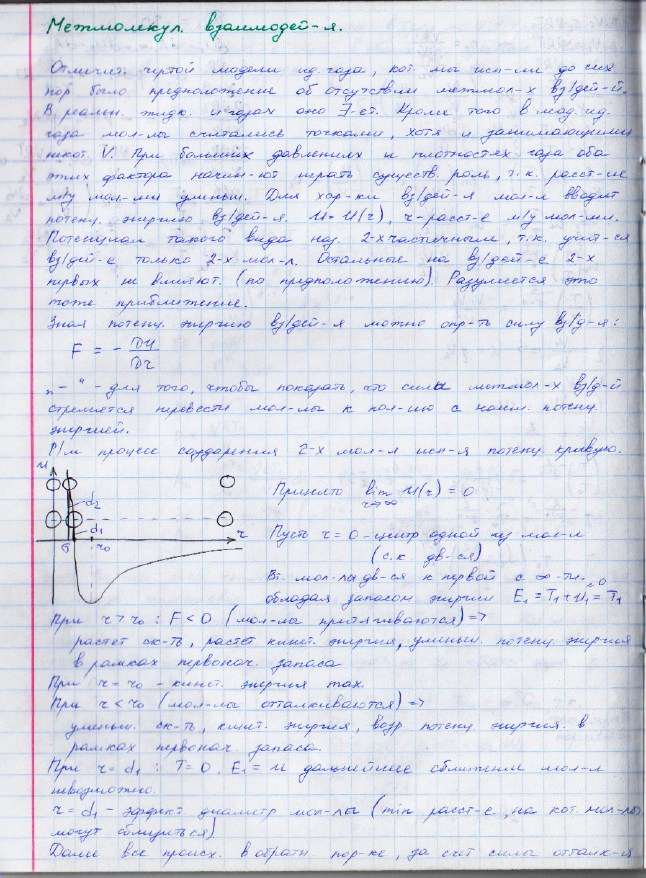 Межмолекул. взаимодей-я.
Отличит. чертой модели ид. газа, кот. мы исп-ли до сих
пор было предположение об отсутствии межмол-х вз/дей-й.
В реальн. жидк. и газах оно ∃-ет. Кроме того в мод. ид.
газа мол-лы считались точками, хотя и занимающими
некот. V. При больших давлениях и плотностях газа оба
этих фактора начин-ют играть существ. роль, т.к. расст-ие
м/у мол-ми уменьш. Для хар-ки вз/дей-я мол-л вводят
потенц. энергию вз/дей-я. U = U(r), r-расст-е м/у мол-ми.
Потенциал такого вида наз. 2-х частичным, т.к. учит-ся
вз/дей-е только 2-х мол-л. Остальные на вз/дей-е 2-х
первых не влияют. (по предположению). Разумеется это
тоже приближение.
Зная потенц. энергию вз/дей-я можно опр-ть силу вз/д-я:
F = - DU/Dr
„ - “ - для того, чтобы показать, что сила межмол-х вз/д-й
стремится перевести мол-лы к пол-ию с наим. потенц.
энергией.
Р/м процесс соударения 2-х мол-л исп-я потенц. кривую.
U
d2
d1
σ r0 r
Принято lim U(r) = 0
r→∞
Пусть r = 0 - центр одной из мол-л
(с.к дв-ся)
Вт. мол-лы дв-ся к первой с ∞-ти.
обладая запасом энергии E1 = T1 + U1 = T1
0
При r > r0 : F < 0 (мол-лы притягиваются) =>
растет ск-ть, растет кинет. энергия, уменьш. потенц. энергия
в рамках первонач. запаса
При r = r0 - кинет. энергия max.
При r < r0 (мол-лы отталкиваются) =>
уменьш. ск-ть, кинет. энергия, возр потенц. энергия. в
рамках первонач запаса.
При r = d1 : T = 0, E1 = U дальнейшее сближение мол-л
невозможно.
r = d1 - эффект. диаметр мол-лы (min расст-е, на кот. мол-лы
могут сблизиться)
Далее все происх. в обратн. пор-ке, за счет силы отталк-я